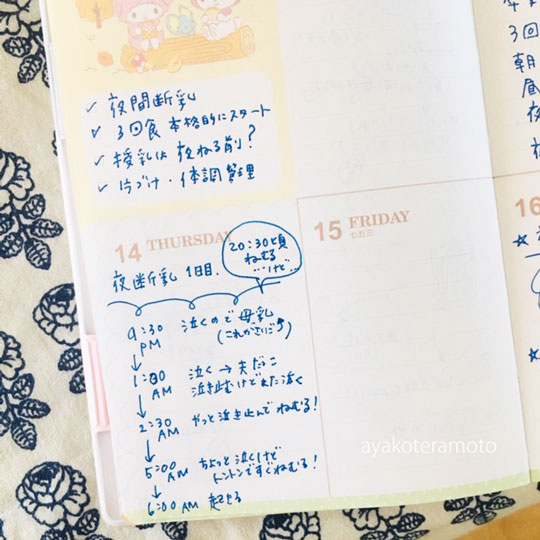 ✓ 夜間断乳
✓ 3回食 本格的にスタート
✓ 授乳は夜ねる前?
✓ 片づけ・体調管理
14 THURSDAY
夜断乳 1日目.
20:30頃
ねむる
…けど…
15 FRIDAY
七五三
9:30 PM 泣くので母乳
↓
1:00 AM 泣く→夫だっこ
泣き止むけどまた泣く
↓
2:30 AM やっと泣き止んでねむる!
↓
5:00 AM ちょっと泣くけど
トントンですぐねむる!
↓
6:00 AM 起きる
16
3回
朝
昼
夜
ayakoteramoto